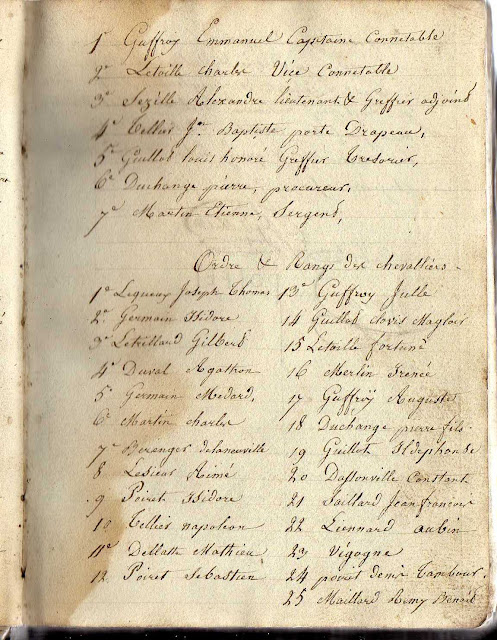 1° Guffroy Emmanuel Capitaine Connetable
2° Letoille charles Vice Connetable
3° Sezille Alexandre lieutenant & Greffier adjoint
4° Tellier Jn Baptiste porte Drapeau,
5° Guillot louis honoré Greffier Tresorier,
6° Duchange pierre, procureur,
7° Martin Etienne, Sergent,
Ordre & Rangs des chevalliers
1° Lequeux Joseph Thomas
2° Germain Isidore
3° Letrillard Gilbert
4° Duval Agathon
5° Germain Medard,
6° Martin charles
7° Beranger delaneuville
8 Lesieur Aimé
9 Poiret Isidore
10 Tellier napoleon
11° Dellatte Mathieu
12 Poiret Sebastien
13° Guffroy Julle
14 Guillot clovis Magloir
15 Letoille fortuné
16 Merlin Irenée
17 Guffroy Auguste
18 Duchange pierre fils
19 Guillot Ildephonse
20 Dassonville Constant
21 Saillard Jean francois
22 Liennard aubin
23 Vigogne
24 poiret denis Tambour.
25 Maillard Remy Benoit